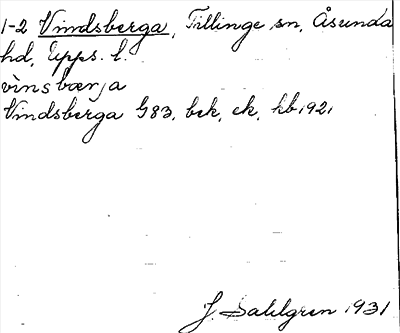 1-2 Vindsberga, Tillinge sn, Åsunda
hd, Upps. l.
vìnsbærja
Vindsberga G83, bek, ek, hb 1921
J. Sahlgren 1931